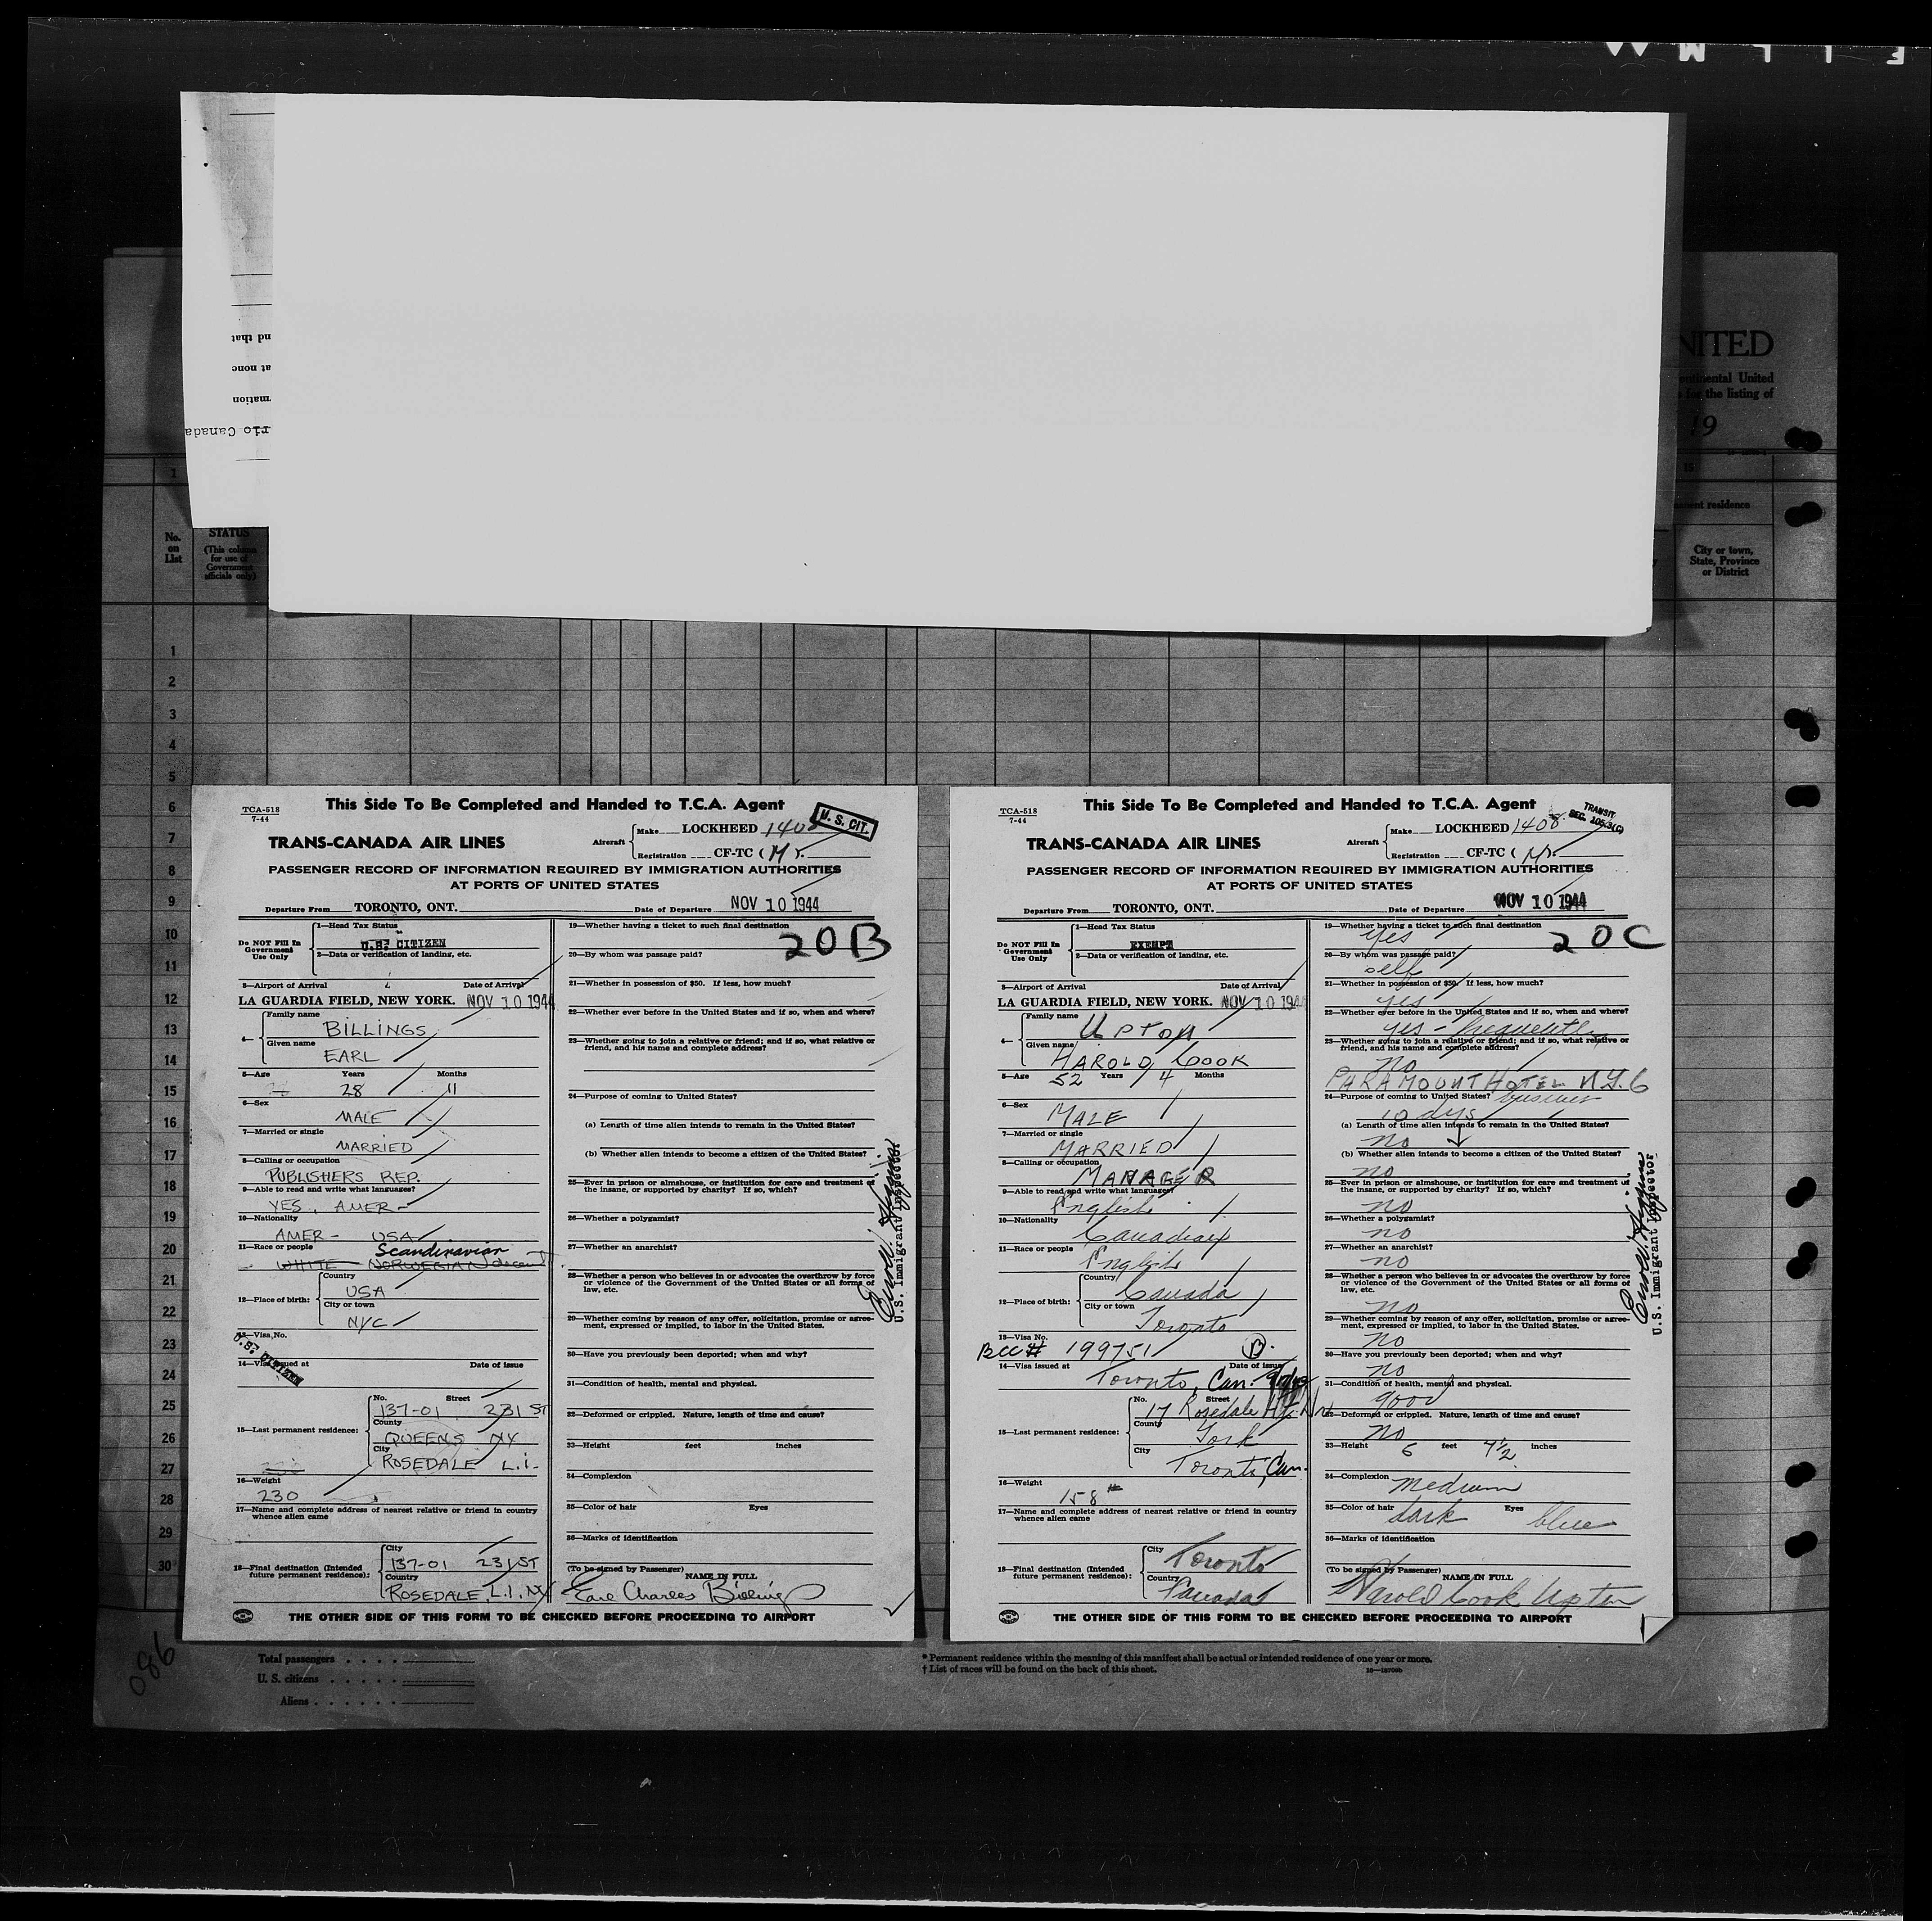 FILM
nd that
at none
mation
rio Canada
NITED
Continental United
for the listing of
19
1
15
permanent residence
No.
on
List
STATUS
(This column
for use of
Government
officials only)
City or town,
State, Province
or District
1
2
3
4
5
6
7
8
9
10
11
12
13
14
15
16
17
18
19
20
21
22
23
24
25
26
27
28
29
30
TCA-518
7-44
This Side To Be Completed and Handed to T.C.A. Agent
U. S. CIT.
TRANS-CANADA AIR LINES
Aircraft
Make LOCKHEED 1408
Registration CF-TC (M).
PASSENGER RECORD OF INFORMATION REQUIRED BY IMMIGRATION AUTHORITIES
AT PORTS OF UNITED STATES
Departure From TORONTO, ONT. Date of Departure NOV 10 1944
Do NOT Fill In
Government
Use Only
1—Head Tax Status
U.S. CITIZEN
2—Data or verification of landing, etc.
3—Airport of Arrival Date of Arrival
LA GUARDIA FIELD, NEW YORK. NOV 10 1944
4— Family name
BILLINGS
Given name
EARL
5—Age Years Months
28 11
6—Sex
MALE
7—Married or single
MARRIED
8—Calling or occupation
PUBLISHERS REP.
9—Able to read and write what languages?
YES, AMER-
10—Nationality
AMER - USA
11—Race or people Scandinavian
WHITE NORWEGIAN descent
12—Place of birth:
Country
USA
City or town
NYC
13—Visa No.
U.S. CITIZEN
14—Visa issued at Date of issue
15—Last permanent residence:
No. Street
137-01 231 ST
County
QUEENS NY
City
ROSEDALE L.I.
16—Weight
230
17—Name and complete address of nearest relative or friend in country
whence alien came
18—Final destination (Intended
future permanent residence):
City
137-01 231 ST
Country
ROSEDALE, L.I., NY
19—Whether having a ticket to such final destination
20B
20—By whom was passage paid?
21—Whether in possession of $50. If less, how much?
22—Whether ever before in the United States and if so, when and where?
23—Whether going to join a relative or friend; and if so, what relative or
friend, and his name and complete address?
24—Purpose of coming to United States?
(a) Length of time alien intends to remain in the United States?
(b) Whether alien intends to become a citizen of the United States?
25—Ever in prison or almshouse, or institution for care and treatment of
the insane, or supported by charity? If so, which?
26—Whether a polygamist?
27—Whether an anarchist?
28—Whether a person who believes in or advocates the overthrow by force
or violence of the Government of the United States or all forms of
law, etc.
29—Whether coming by reason of any offer, solicitation, promise or agree-
ment, expressed or implied, to labor in the United States.
30—Have you previously been deported; when and why?
31—Condition of health, mental and physical.
32—Deformed or crippled. Nature, length of time and cause?
33—Height feet inches
34—Complexion
35—Color of hair Eyes
36—Marks of identification
(To be signed by Passenger)
NAME IN FULL
Earl Charles Billings
U.S. Immigrant Inspector
THE OTHER SIDE OF THIS FORM TO BE CHECKED BEFORE PROCEEDING TO AIRPORT
TCA-518
7-44
This Side To Be Completed and Handed to T.C.A. Agent
TRANSIT
SEC. 105.3(C)
TRANS-CANADA AIR LINES
Aircraft
Make LOCKHEED 1408
Registration CF-TC (M).
PASSENGER RECORD OF INFORMATION REQUIRED BY IMMIGRATION AUTHORITIES
AT PORTS OF UNITED STATES
Departure From TORONTO, ONT. Date of Departure NOV 10 1944
Do NOT Fill In
Government
Use Only
1—Head Tax Status
EXEMPT
2—Data or verification of landing, etc.
3—Airport of Arrival Date of Arrival
LA GUARDIA FIELD, NEW YORK. NOV 10 1944
4— Family name
UPTON
Given name
HAROLD COOK
5—Age 52 Years 4 Months
6—Sex
MALE
7—Married or single
MARRIED
8—Calling or occupation
MANAGER
9—Able to read and write what languages?
English
10—Nationality
Canadian
11—Race or people
English
12—Place of birth:
Country
Canada
City or town
Toronto
13—Visa No.
BCC # 199751
14—Visa issued at Date of issue
Toronto, Can.
15—Last permanent residence:
No. Street
17 Rosedale Hts.
County
York
City
Toronto, Can.
16—Weight
158 #
17—Name and complete address of nearest relative or friend in country
whence alien came
18—Final destination (Intended
future permanent residence):
City
Toronto
Country
Canada
19—Whether having a ticket to such final destination
yes 20C
20—By whom was passage paid?
self
21—Whether in possession of $50. If less, how much?
yes
22—Whether ever before in the United States and if so, when and where?
yes - frequently
23—Whether going to join a relative or friend; and if so, what relative or
friend, and his name and complete address?
no
PARAMOUNT HOTEL N.Y.C
24—Purpose of coming to United States? business
10 dys
(a) Length of time alien intends to remain in the United States?
no
(b) Whether alien intends to become a citizen of the United States?
no
25—Ever in prison or almshouse, or institution for care and treatment of
the insane, or supported by charity? If so, which?
no
26—Whether a polygamist?
no
27—Whether an anarchist?
no
28—Whether a person who believes in or advocates the overthrow by force
or violence of the Government of the United States or all forms of
law, etc.
no
29—Whether coming by reason of any offer, solicitation, promise or agree-
ment, expressed or implied, to labor in the United States.
no
30—Have you previously been deported; when and why?
no
31—Condition of health, mental and physical.
good
32—Deformed or crippled. Nature, length of time and cause?
no
33—Height 5 feet 7 1/2 inches
34—Complexion
medium
35—Color of hair Eyes
dark blue
36—Marks of identification
(To be signed by Passenger)
NAME IN FULL
Harold Cook Upton
U.S. Immigrant Inspector
THE OTHER SIDE OF THIS FORM TO BE CHECKED BEFORE PROCEEDING TO AIRPORT
086
Total passengers
U. S. citizens
Aliens
* Permanent residence within the meaning of this manifest shall be actual or intended residence of one year or more.
† List of races will be found on the back of this sheet.